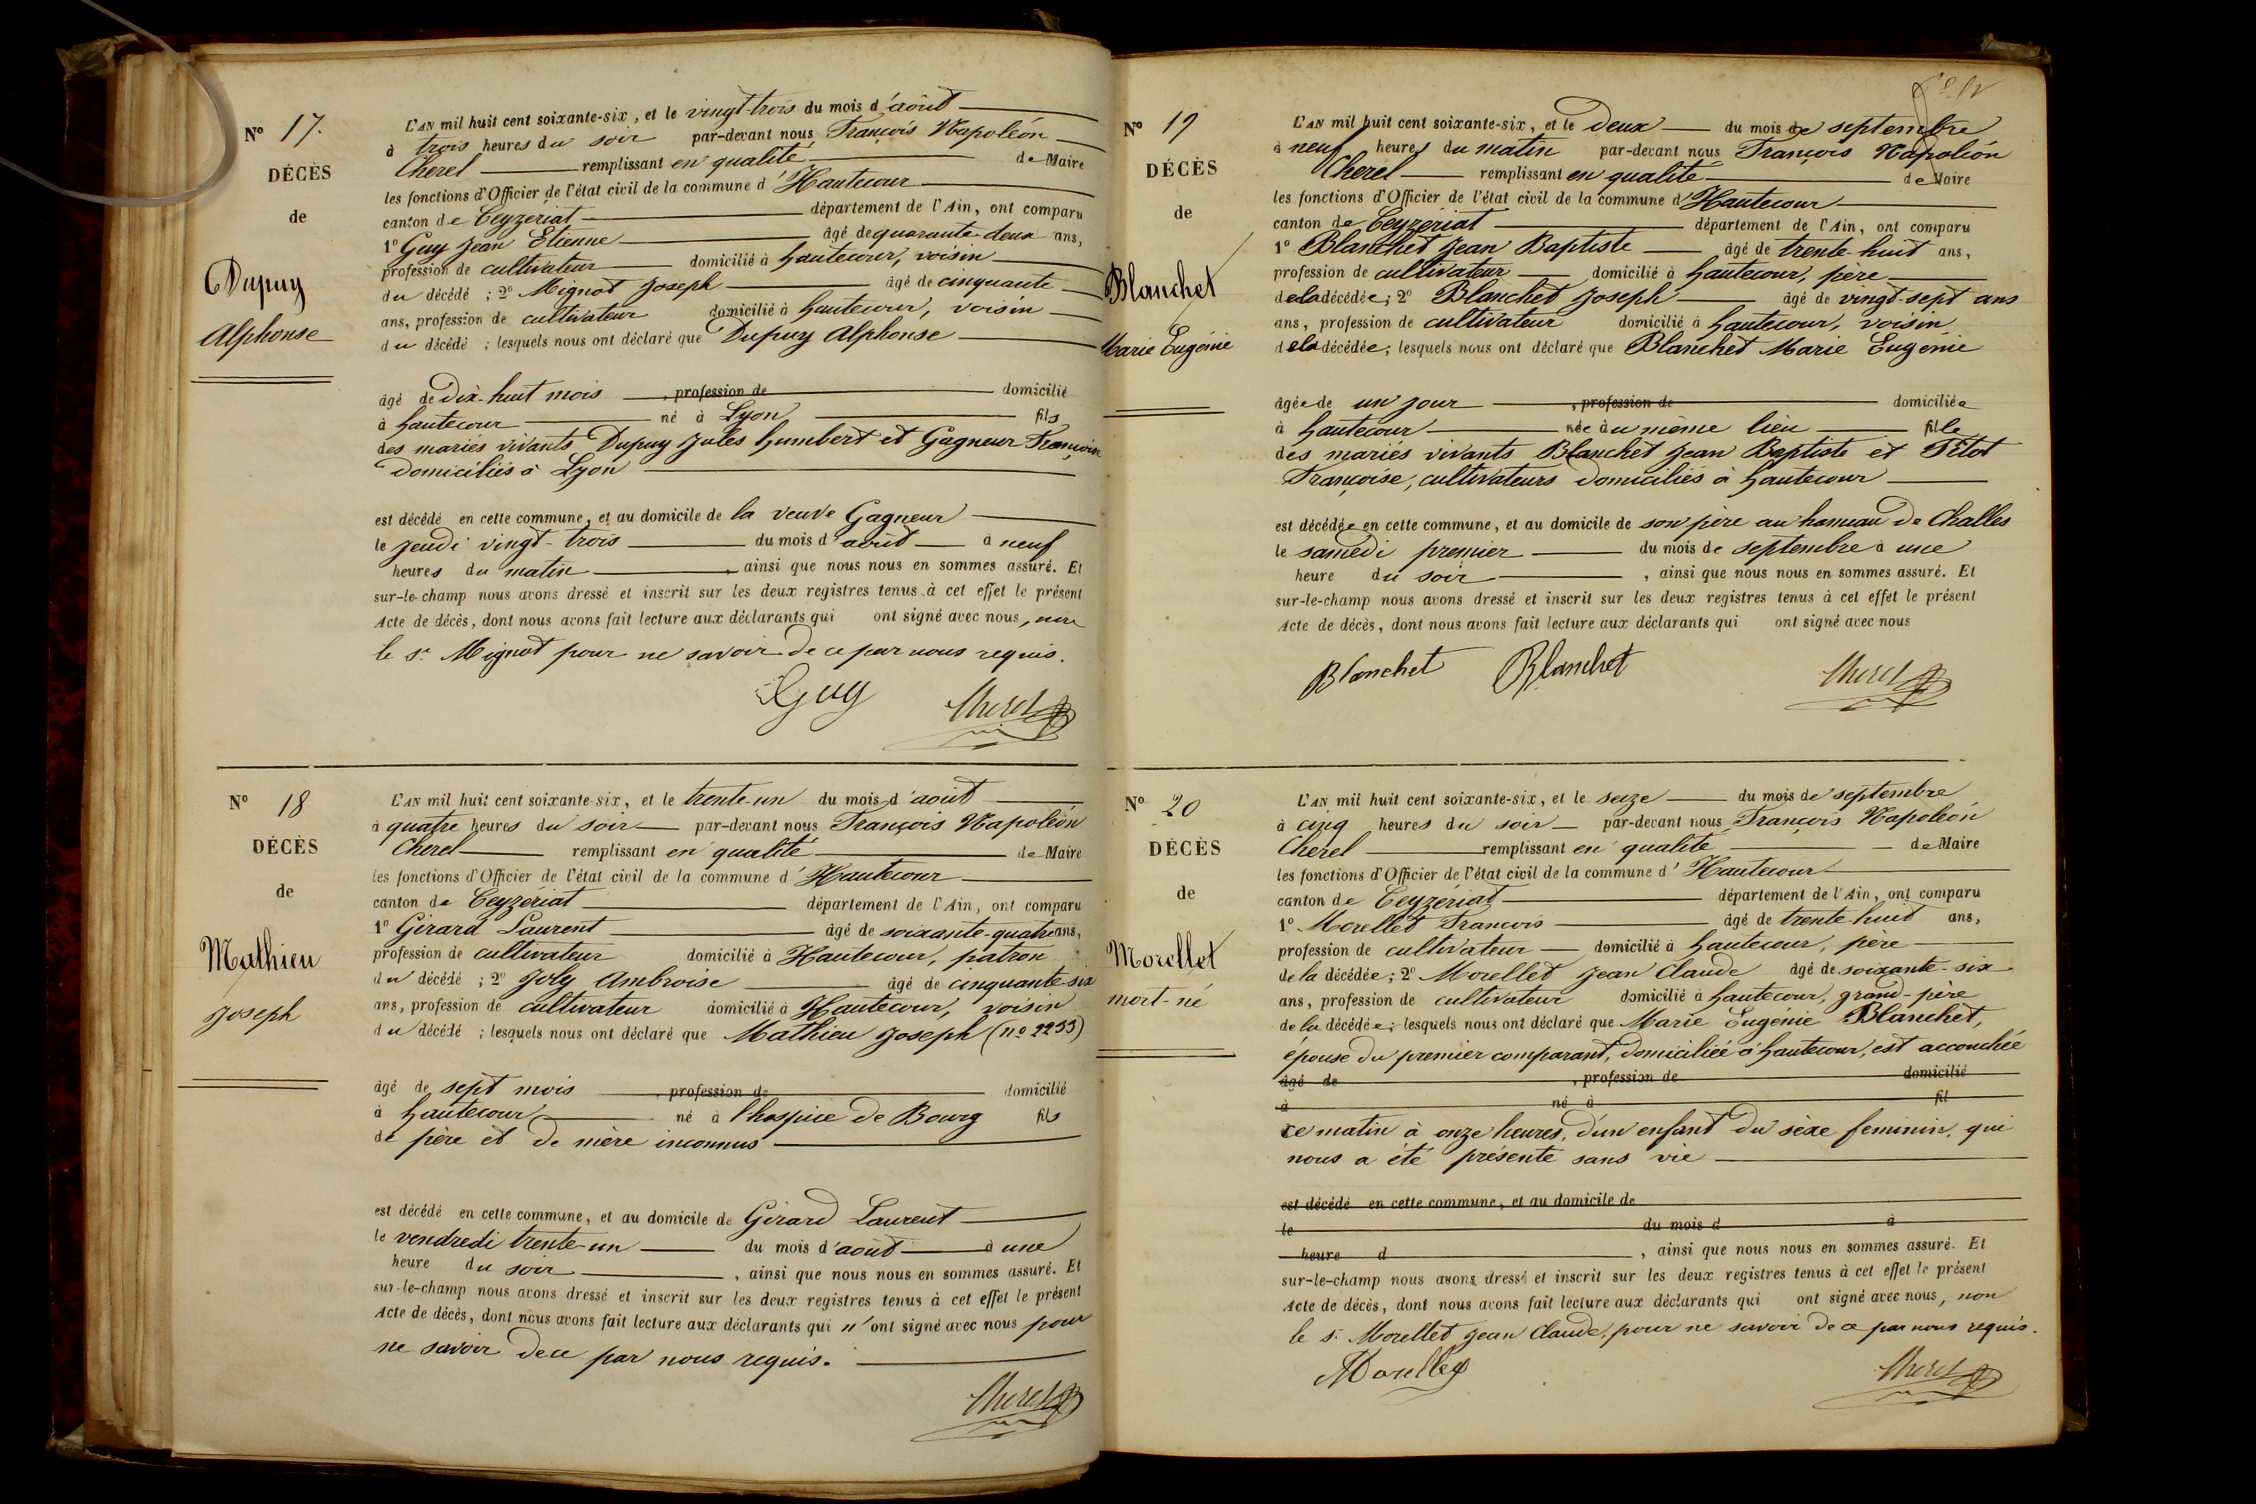 Nº 17.
DÉCÈS
de
Dupuy
Alphonse
L'AN mil huit cent soixante-six, et le vingt-trois du mois d'août
à trois heures du soir par-devant nous François Napoléon
Cherel remplissant en qualité de Maire
les fonctions d'Officier de l'état civil de la commune d'Hautecour
canton de Ceyzériat département de l'Ain, ont comparu
1º Guy Jean Etienne âgé de quarante-deux ans,
profession de cultivateur domicilié à hautecour, voisin
du décédé ; 2º Mignot Joseph âgé de cinquante
ans, profession de cultivateur domicilié à hautecour, voisin
du décédé ; lesquels nous ont déclaré que Dupuy Alphonse
âgé de dix-huit mois , profession de domicilié
à hautecour né à Lyon fils
des mariés vivants Dupuy Jules humbert et Gagneur Françoise
domiciliés à Lyon
est décédé en cette commune, et au domicile de la veuve Gagneur
le jeudi vingt-trois du mois d'août à neuf
heures du matin , ainsi que nous nous en sommes assuré. Et
sur-le-champ nous avons dressé et inscrit sur les deux registres tenus à cet effet le présent
Acte de décès, dont nous avons fait lecture aux déclarants qui ont signé avec nous, non
le sr Mignot pour ne savoir de ce par nous requis.
Guy Cherel
Nº 18
DÉCÈS
de
Mathieu
Joseph
L'AN mil huit cent soixante-six, et le trente-un du mois d'août
à quatre heures du soir par-devant nous François Napoléon
Cherel remplissant en qualité de Maire
les fonctions d'Officier de l'état civil de la commune d'Hautecour
canton de Ceyzériat département de l'Ain, ont comparu
1º Girard Laurent âgé de soixante-quatre ans,
profession de cultivateur domicilié à Hautecour, patron
du décédé ; 2º Joly Ambroise âgé de cinquante-six
ans, profession de cultivateur domicilié à Hautecour, voisin
du décédé ; lesquels nous ont déclaré que Mathieu Joseph (nº 2233)
âgé de sept mois , profession de domicilié
à hautecour né à l'hospice de Bourg fils
de père et de mère inconnus
est décédé en cette commune, et au domicile de Girard Laurent
le vendredi trente-un du mois d'août à une
heure du soir , ainsi que nous nous en sommes assuré. Et
sur-le-champ nous avons dressé et inscrit sur les deux registres tenus à cet effet le présent
Acte de décès, dont nous avons fait lecture aux déclarants qui n'ont signé avec nous pour
ne savoir de ce par nous requis.
Cherel
Nº 19
DÉCÈS
de
Blanchet
Marie Eugénie
L'AN mil huit cent soixante-six, et le deux du mois de septembre
à neuf heures du matin par-devant nous François Napoléon
Cherel remplissant en qualité de Maire
les fonctions d'Officier de l'état civil de la commune d'Hautecour
canton de Ceyzériat département de l'Ain, ont comparu
1º Blanchet Jean Baptiste âgé de trente-huit ans,
profession de cultivateur domicilié à hautecour, père
de la décédée ; 2º Blanchet Joseph âgé de vingt-sept ans
ans, profession de cultivateur domicilié à hautecour, voisin
de la décédée ; lesquels nous ont déclaré que Blanchet Marie Eugénie
âgée de un jour , profession de domiciliée
à hautecour née au même lieu fille
des mariés vivants Blanchet Jean Baptiste et Pitot
Françoise, cultivateurs domiciliés à hautecour
est décédée en cette commune, et au domicile de son père au hameau de Challes
le samedi premier du mois de septembre à une
heure du soir , ainsi que nous nous en sommes assuré. Et
sur-le-champ nous avons dressé et inscrit sur les deux registres tenus à cet effet le présent
Acte de décès, dont nous avons fait lecture aux déclarants qui ont signé avec nous
Blanchet Blanchet Cherel
Nº 20
DÉCÈS
de
Morellet
mort-né
L'AN mil huit cent soixante-six, et le seize du mois de septembre
à cinq heures du soir par-devant nous François Napoléon
Cherel remplissant en qualité de Maire
les fonctions d'Officier de l'état civil de la commune d'Hautecour
canton de Ceyzériat département de l'Ain, ont comparu
1º Morellet François âgé de trente-huit ans,
profession de cultivateur domicilié à hautecour, père
de la décédée ; 2º Morellet Jean Claude âgé de soixante-six
ans, profession de cultivateur domicilié à hautecour, grand-père
de la décédée ; lesquels nous ont déclaré que Marie Eugénie Blanchet,
épouse du premier comparant, domiciliée à hautecour, est accouchée
âgé de , profession de domicilié
à né à fil
ce matin à onze heures, d'un enfant du sèxe feminin, qui
nous a été présenté sans vie
est décédé en cette commune, et au domicile de
le du mois d à
heure d , ainsi que nous nous en sommes assuré. Et
sur-le-champ nous avons dressé et inscrit sur les deux registres tenus à cet effet le présent
Acte de décès, dont nous avons fait lecture aux déclarants qui ont signé avec nous, non
le sr Morellet Jean Claude, pour ne savoir de ce par nous requis.
Morellet Cherel